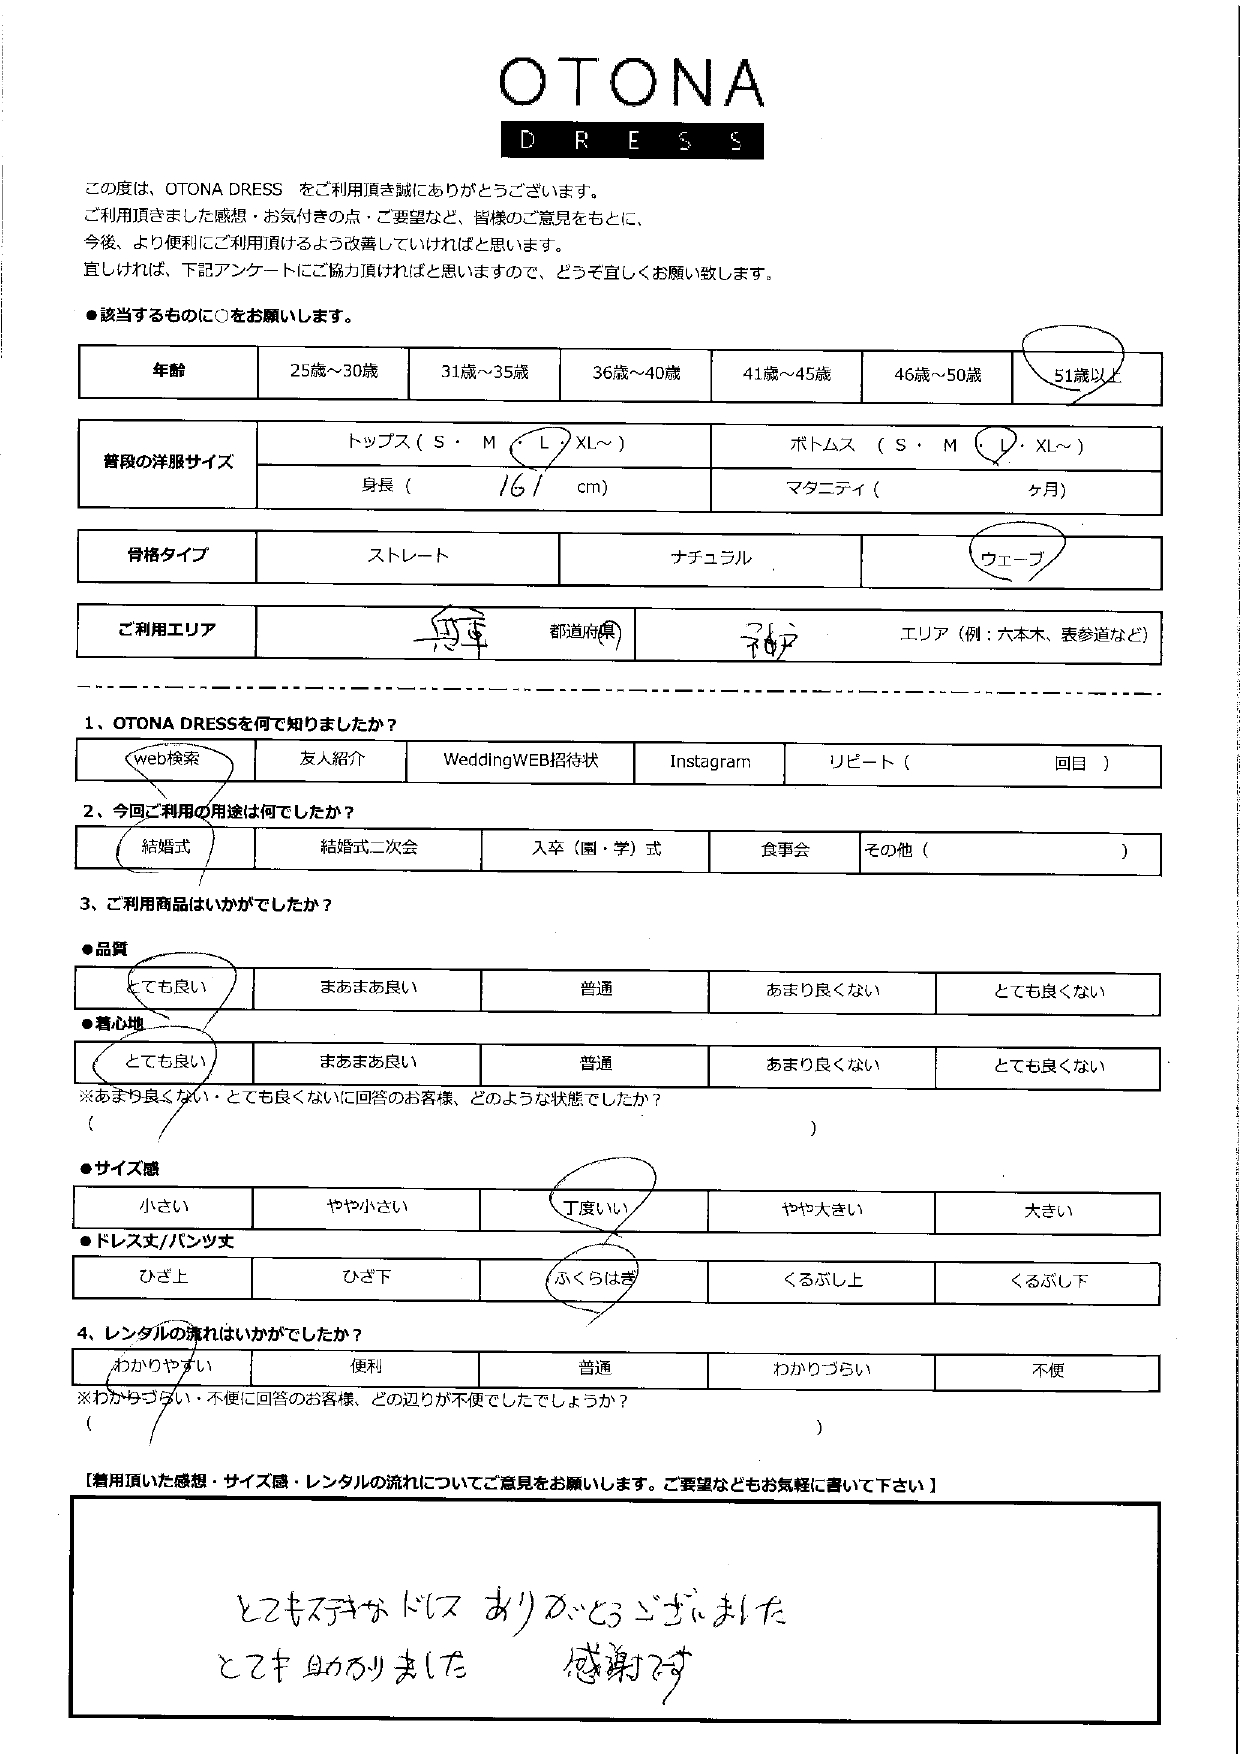 OTONA
DRESS
この度は、OTONA DRESS をご利用頂き誠にありがとうございます。
ご利用頂きました感想・お気付きの点・ご要望など、皆様のご意見をもとに、
今後、より便利にご利用頂けるよう改善していければと思います。
宜しければ、下記アンケートにご協力頂ければと思いますので、どうぞ宜しくお願い致します。
●該当するものに○をお願いします。
年齢 25歳～30歳 31歳～35歳 36歳～40歳 41歳～45歳 46歳～50歳 51歳以上
普段の洋服サイズ
トップス ( S ・ M ・ L ・ XL～ ) ボトムス ( S ・ M ・ L ・ XL～ )
身長 ( 161 cm) マタニティ ( ヶ月)
骨格タイプ ストレート ナチュラル ウェーブ
ご利用エリア 兵庫 都道府県 神戸 エリア（例：六本木、表参道など）
1、OTONA DRESSを何で知りましたか？
web検索 友人紹介 WeddingWEB招待状 Instagram リピート ( 回目 )
2、今回ご利用の用途は何でしたか？
結婚式 結婚式二次会 入卒（園・学）式 食事会 その他 ( )
3、ご利用商品はいかがでしたか？
●品質
とても良い まあまあ良い 普通 あまり良くない とても良くない
●着心地
とても良い まあまあ良い 普通 あまり良くない とても良くない
※あまり良くない・とても良くないに回答のお客様、どのような状態でしたか？
( )
●サイズ感
小さい やや小さい 丁度いい やや大きい 大きい
●ドレス丈/パンツ丈
ひざ上 ひざ下 ふくらはぎ くるぶし上 くるぶし下
4、レンタルの流れはいかがでしたか？
わかりやすい 便利 普通 わかりづらい 不便
※わかりづらい・不便に回答のお客様、どの辺りが不便でしたでしょうか？
( )
【着用頂いた感想・サイズ感・レンタルの流れについてご意見をお願いします。ご要望などもお気軽に書いて下さい】
とてもステキなドレス ありがとうございました
とても助かりました 感謝です